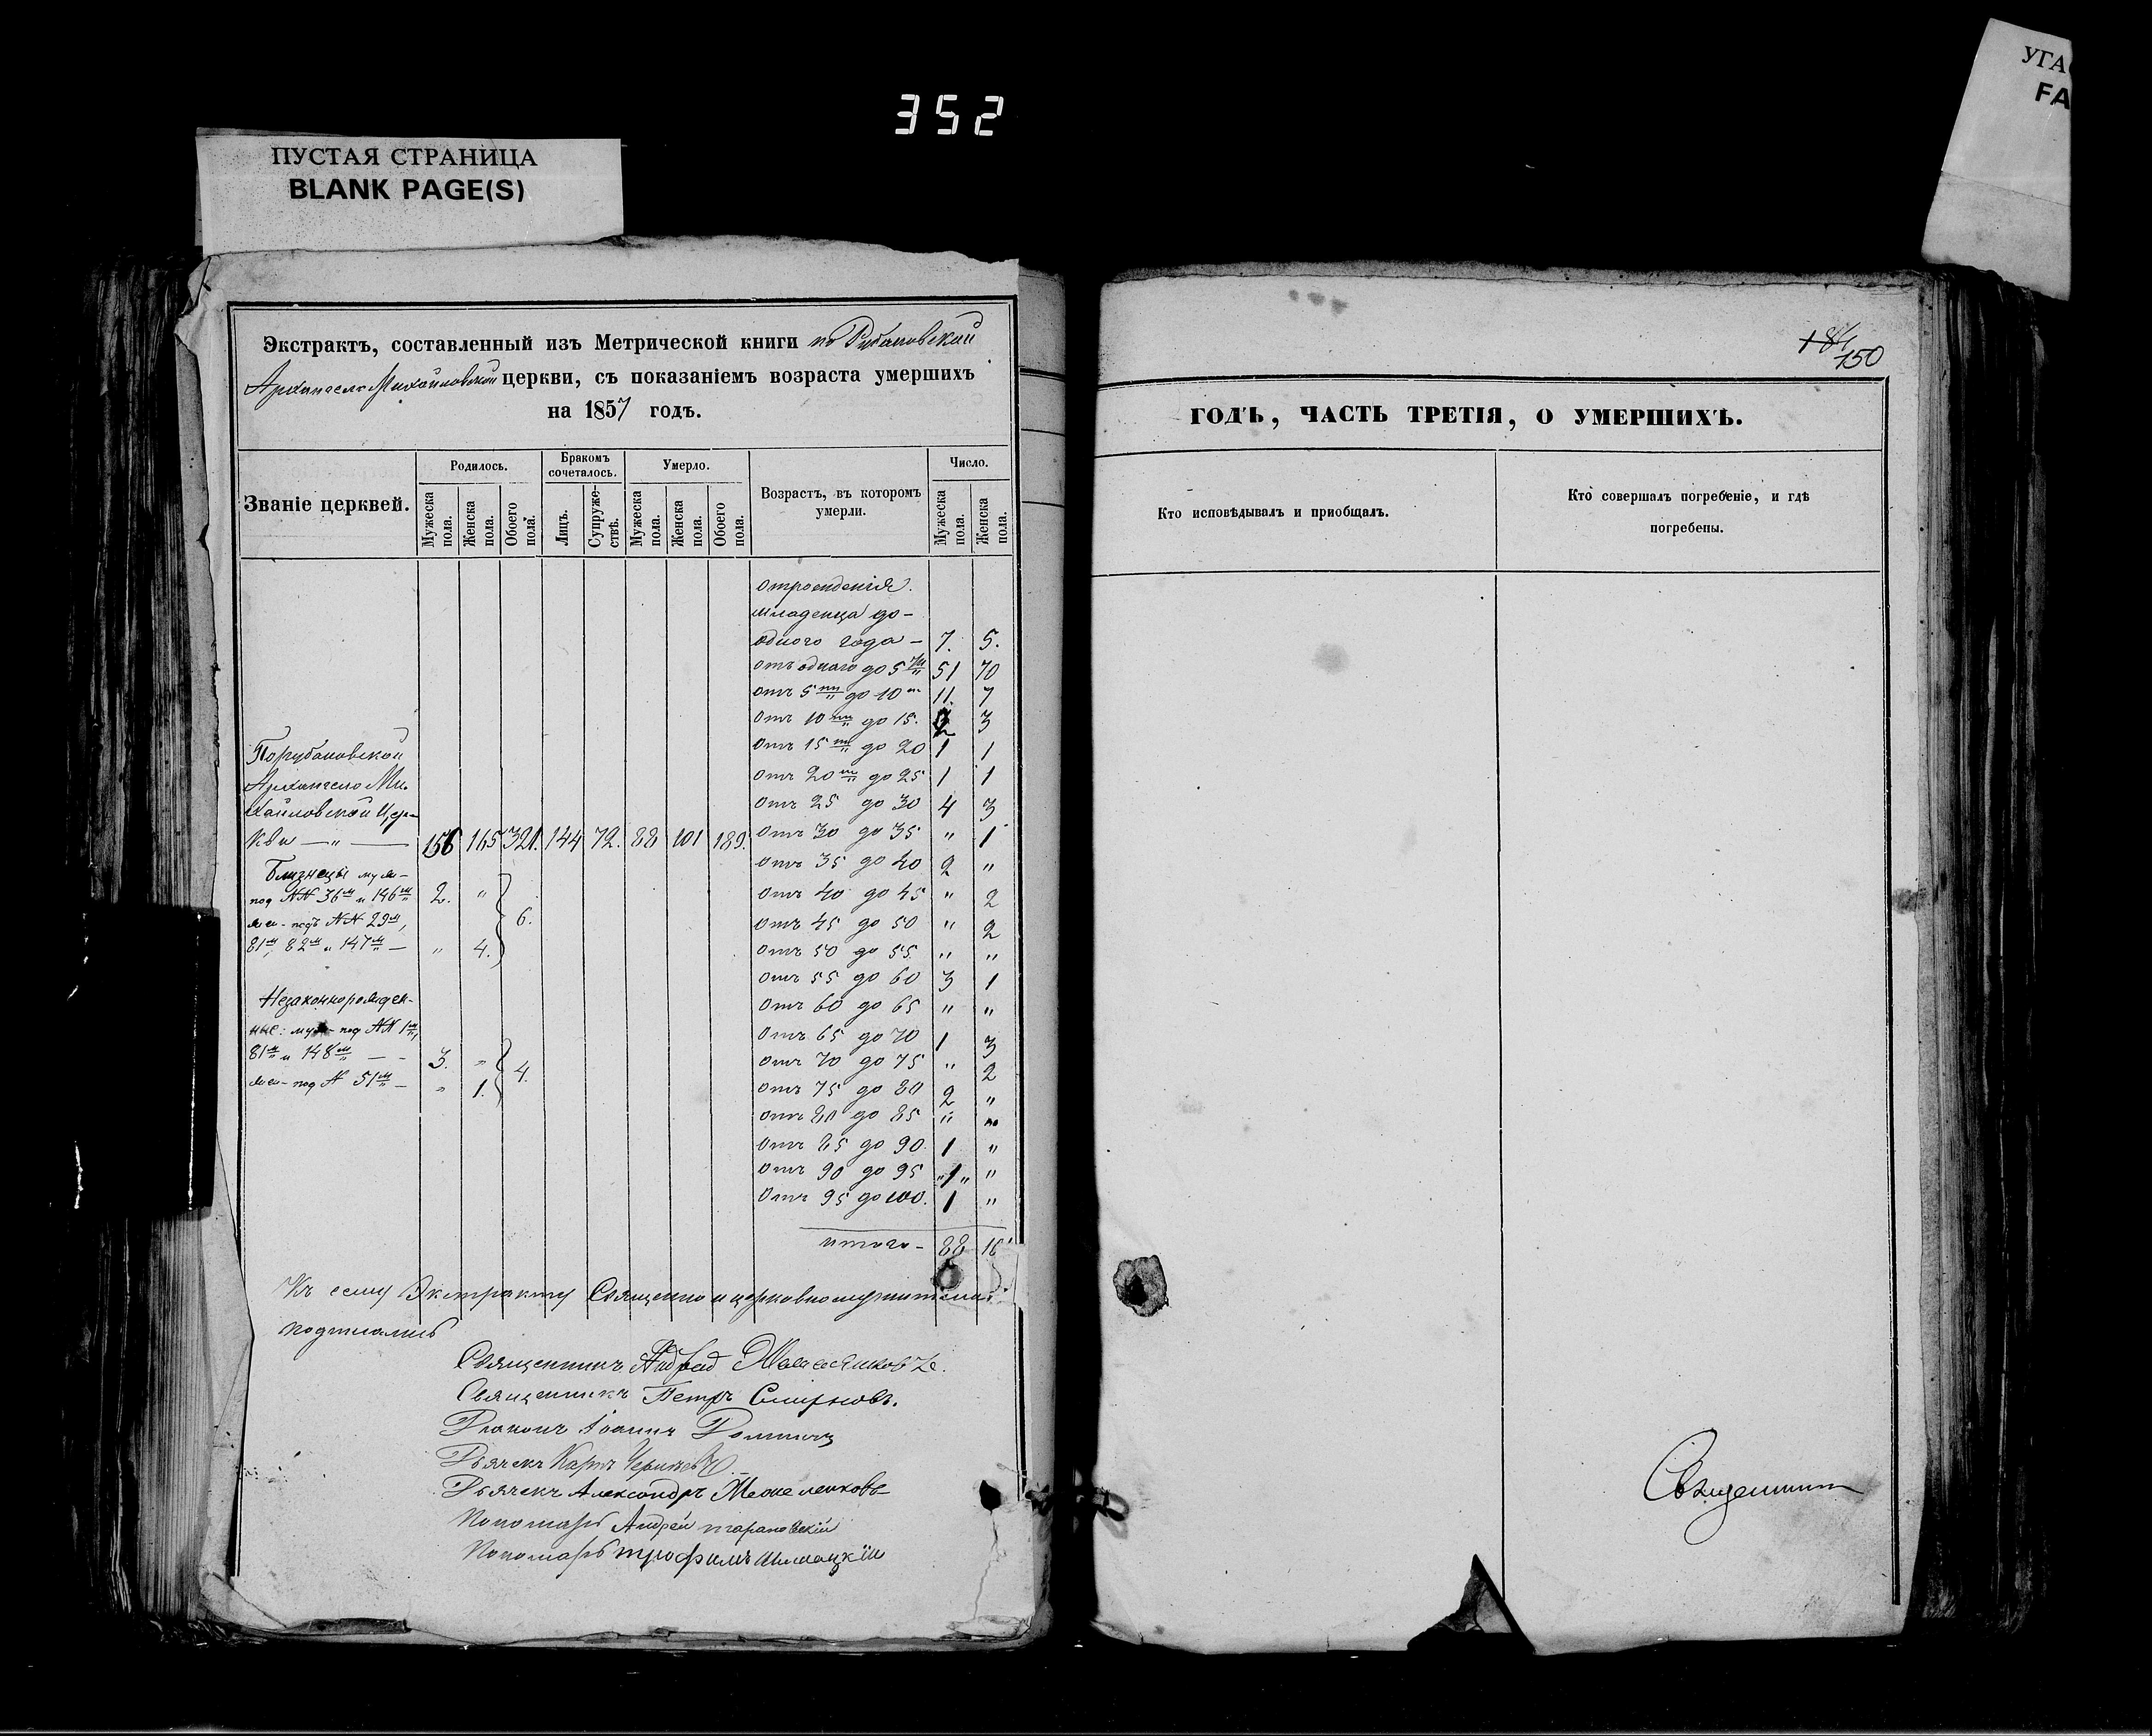 352
ПУСТАЯ СТРАНИЦА
BLANK PAGE(S)
УГА
FA
Экстрактъ, составленный изъ Метрической книги по Рубановской
Архангело Михайловской церкви, съ показаніемъ возраста умершихъ
на 1857 годъ.
Званіе церквей.
Родилось.
Бракомъ сочеталось.
Умерло.
Возрастъ, въ которомъ умерли.
Число.
Мужеска пола.
Женска пола.
Обоего пола.
Лицъ.
Супружествъ.
Мужеска пола.
Женска пола.
Обоего пола.
Мужеска пола.
Женска пола.
отрождения
младенца до-
одного года - 7. 5.
отъ одного до 5 ти 51 70
отъ 5 ти до 10 11. 7
отъ 10 ти до 15. 2 3
отъ 15 ти до 20 1 1
отъ 20 ти до 25 1 1
отъ 25 до 30 4 3
отъ 30 до 35 " 1
отъ 35 до 40 2 "
отъ 40 до 45 " 2
отъ 45 до 50 " 2
отъ 50 до 55 " "
отъ 55 до 60 3 1
отъ 60 до 65 " "
отъ 65 до 70 1 3
отъ 70 до 75 " 2
отъ 75 до 80 2 "
отъ 80 до 85 " "
отъ 85 до 90 1 "
отъ 90 до 95 "1" "
отъ 95 до 100. 1 "
итого - 88
По рубановской
Архангело Ми-
хайловской Цер-
кви — " — 156 165 321. 144 72. 88 101 189.
Близнецы муж-
под NN 36м и 146м 2. "
жен- подъ NN 29м, 6.
81м, 82м и 147м — " 4.
Незаконнорожден-
ные: муж- под NN 1м,
81м и 148м — - 3. "
4.
жен- под N 51м — " 1.
Къ сему Экстракту Священно и церковнослужители
подписались
Священникъ Андрей
Священникъ Петръ Смирновъ.
Діаконъ Іоаннъ
Дьячекъ Карпъ
Дьячекъ Александръ
Пономарь Андрей тарановскій
Пономарь трофимъ
184
150
ГОДЪ, ЧАСТЬ ТРЕТІЯ, О УМЕРШИХЪ.
Кто исповѣдывалъ и приобщалъ.
Кто совершалъ погребеніе, и гдѣ
погребены.
Священникъ